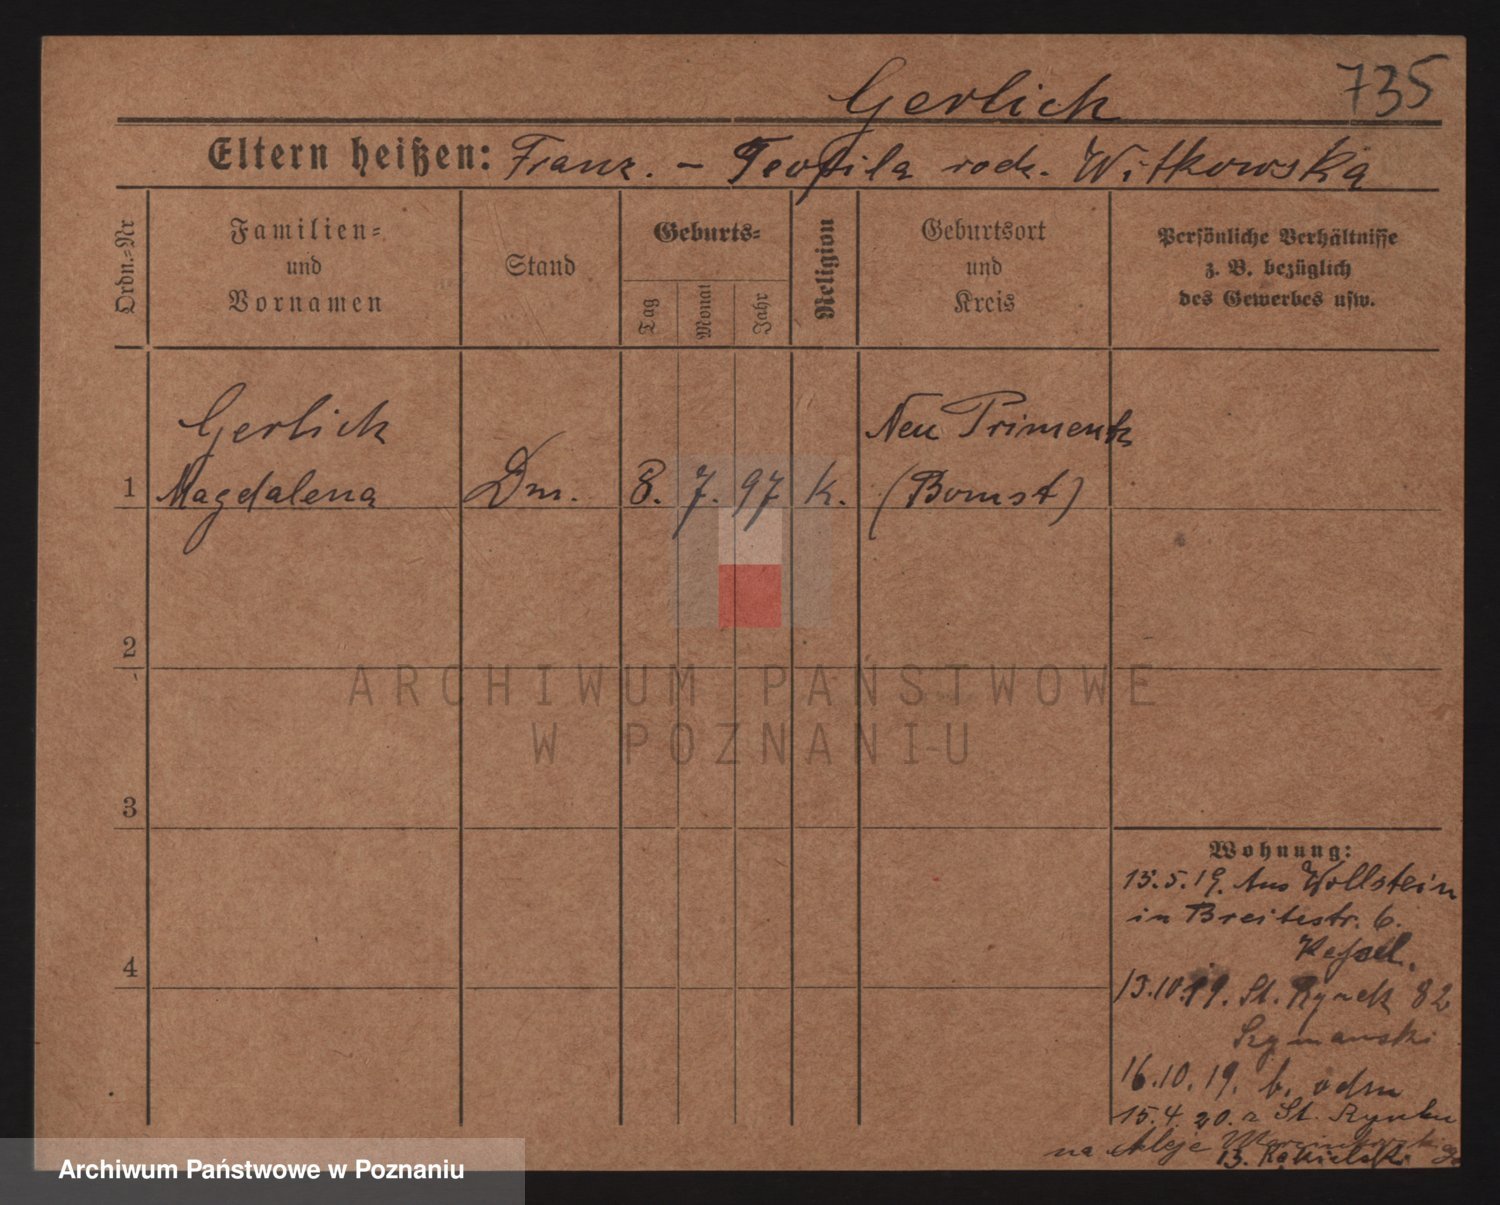 Gerlich 735
Eltern heißen: Franz. – Teofila rodz. Witkowska
Ordn.-Nr
Familien-
und
Vornamen
Stand
Geburts-
Tag Monat Jahr
Religion
Geburtsort
und
Kreis
Persönliche Verhältnisse
z. B. bezüglich
des Gewerbes usw.
Gerlich
1 Magdalena Dm. 8. 7. 97 k.
Neu Priment
(Bomst)
2
3
4
ARCHIWUM PAŃSTWOWE
W POZNANIU
Wohnung:
15.5.19. Aus Wollstein
in Breitestr. 6.
Kessel.
13.10.19. St. Rynek 82
Szymanski
16.10.19. b. odm
15.4.20. z St. Rynku
na Aleje Marcinkowskiego
13.
Archiwum Państwowe w Poznaniu